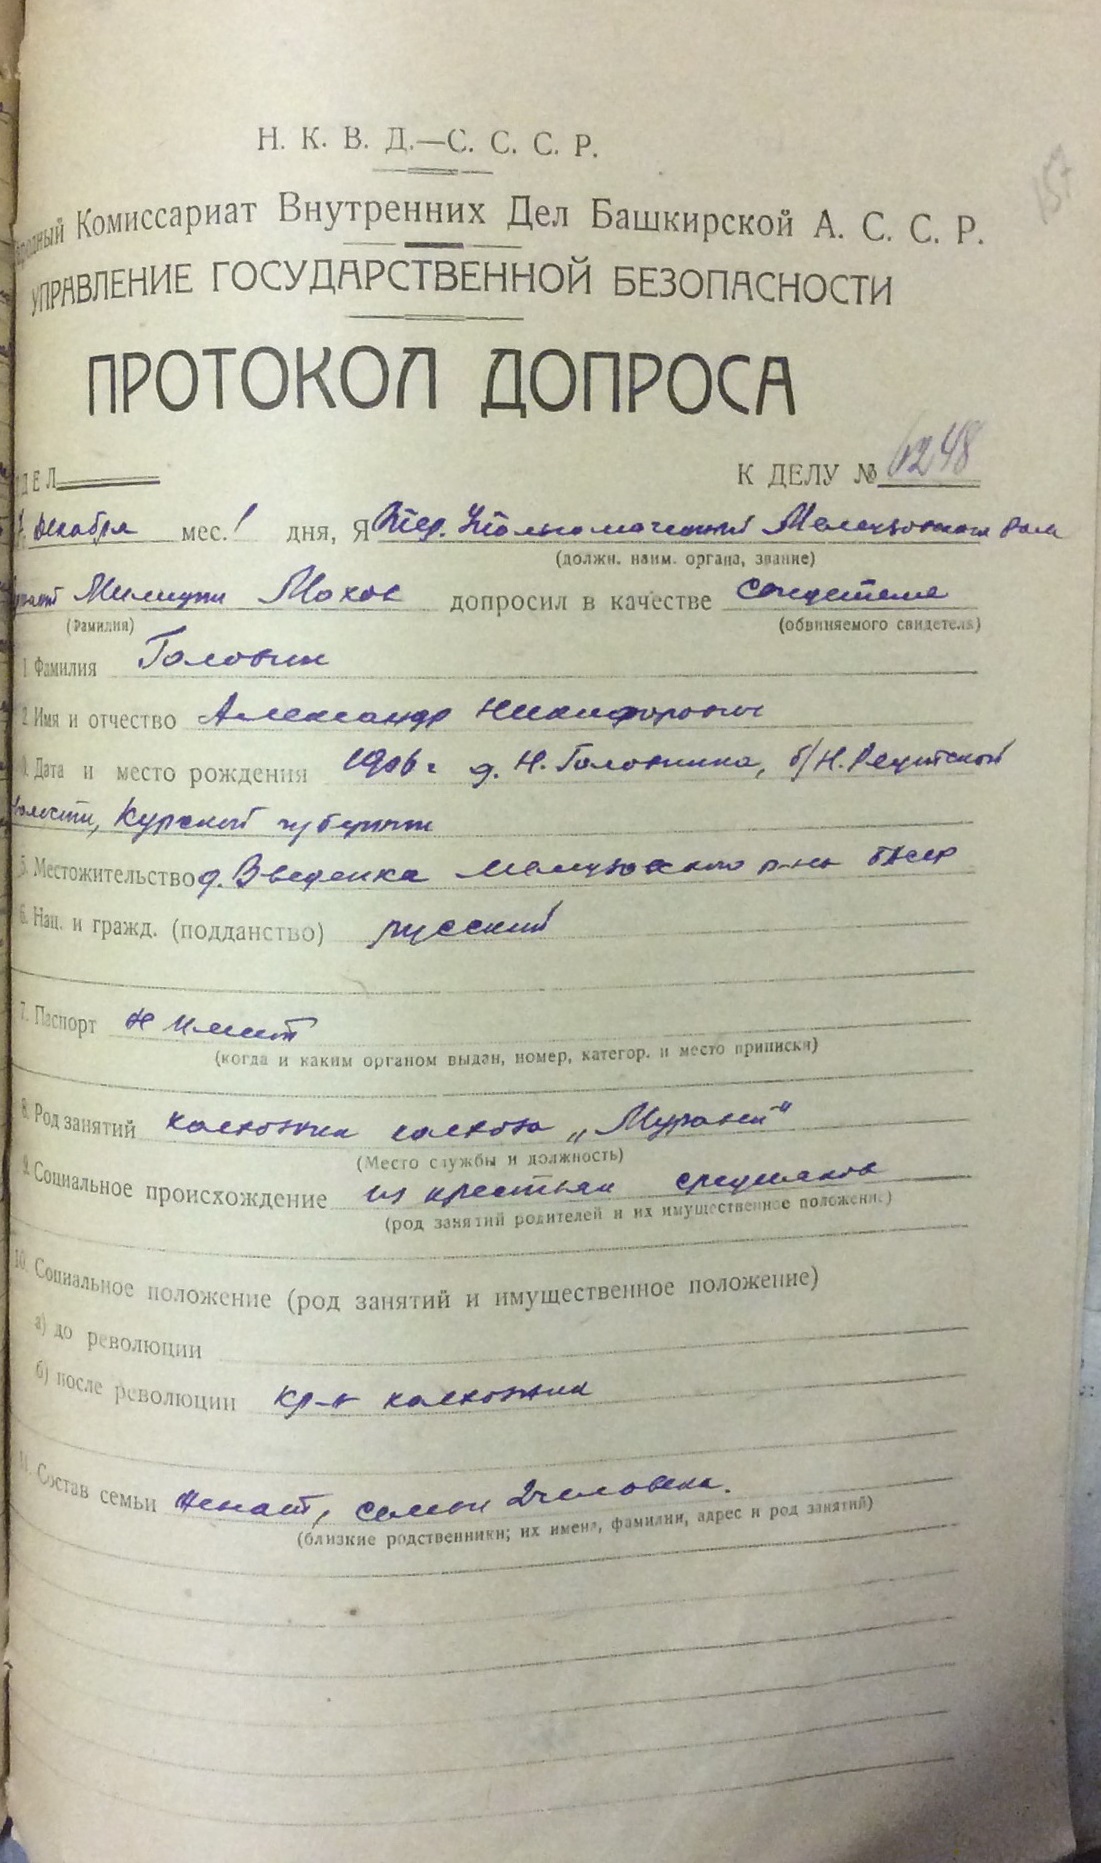 157
Н. К. В. Д.—С. С. С. Р.
Комиссариат Внутренних Дел Башкирской А. С. С. Р.
УПРАВЛЕНИЕ ГОСУДАРСТВЕННОЙ БЕЗОПАСНОСТИ
ПРОТОКОЛ ДОПРОСА
ДЕЛ
К ДЕЛУ № 6248
декабря мес. 1 дня, Я Мелеузовского
(должн. наим. органа, звание)
Милиции Мохов допросил в качестве свидетеля
(Фамилия) (обвиняемого свидетеля)
1. Фамилия Головин
2. Имя и отчество Александр Никифорович
3. Дата и место рождения 1906 г д. Н. Головинка, б/Н. Реутской
волости, Курской губернии
5. Местожительство д. Введенка Мелеузовского р-на БАССР
6. Нац. и гражд. (подданство) русский
7. Паспорт н имеет
(когда и каким органом выдан, номер, категор. и место приписки)
8. Род занятий колхозник колхоза
(Место службы и должность)
9. Социальное происхождение из крестьян середняков
(род занятий родителей и их имущественное положение)
10. Социальное положение (род занятий и имущественное положение)
а) до революции
б) после революции кр-н колхозник
11. Состав семьи женат, семьи 2 человека.
(близкие родственники; их имена, фамилии, адрес и род занятий)